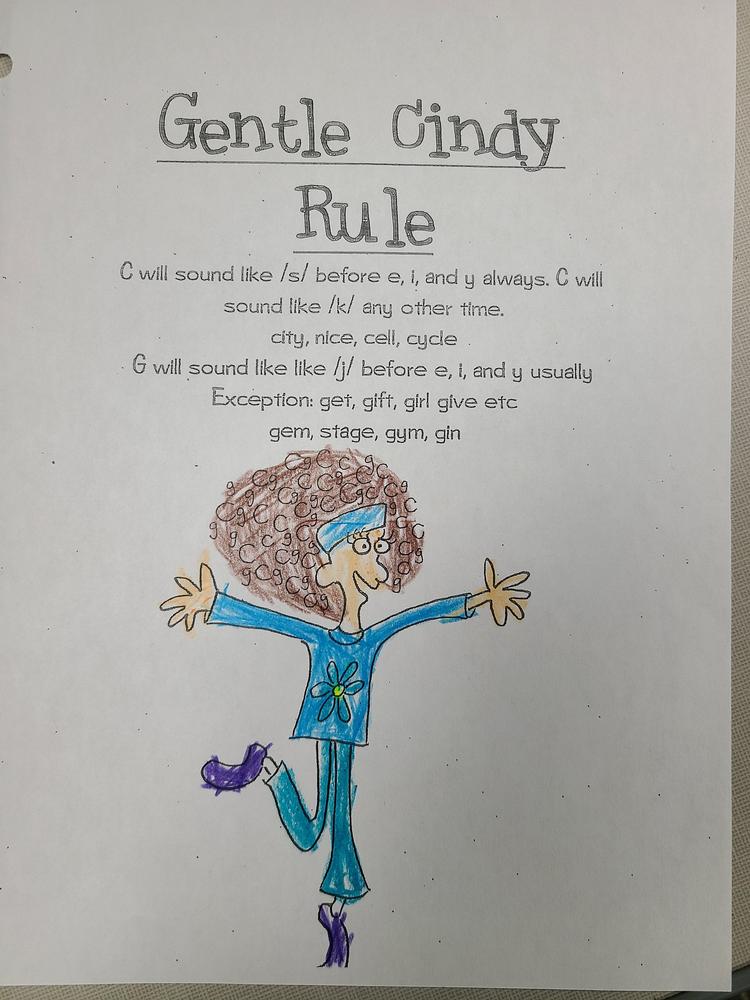 Gentle Cindy
Rule
C will sound like /s/ before e, i, and y always. C will
sound like /k/ any other time.
city, nice, cell, cycle
G will sound like like /j/ before e, i, and y usually
Exception: get, gift, girl give etc
gem, stage, gym, gin